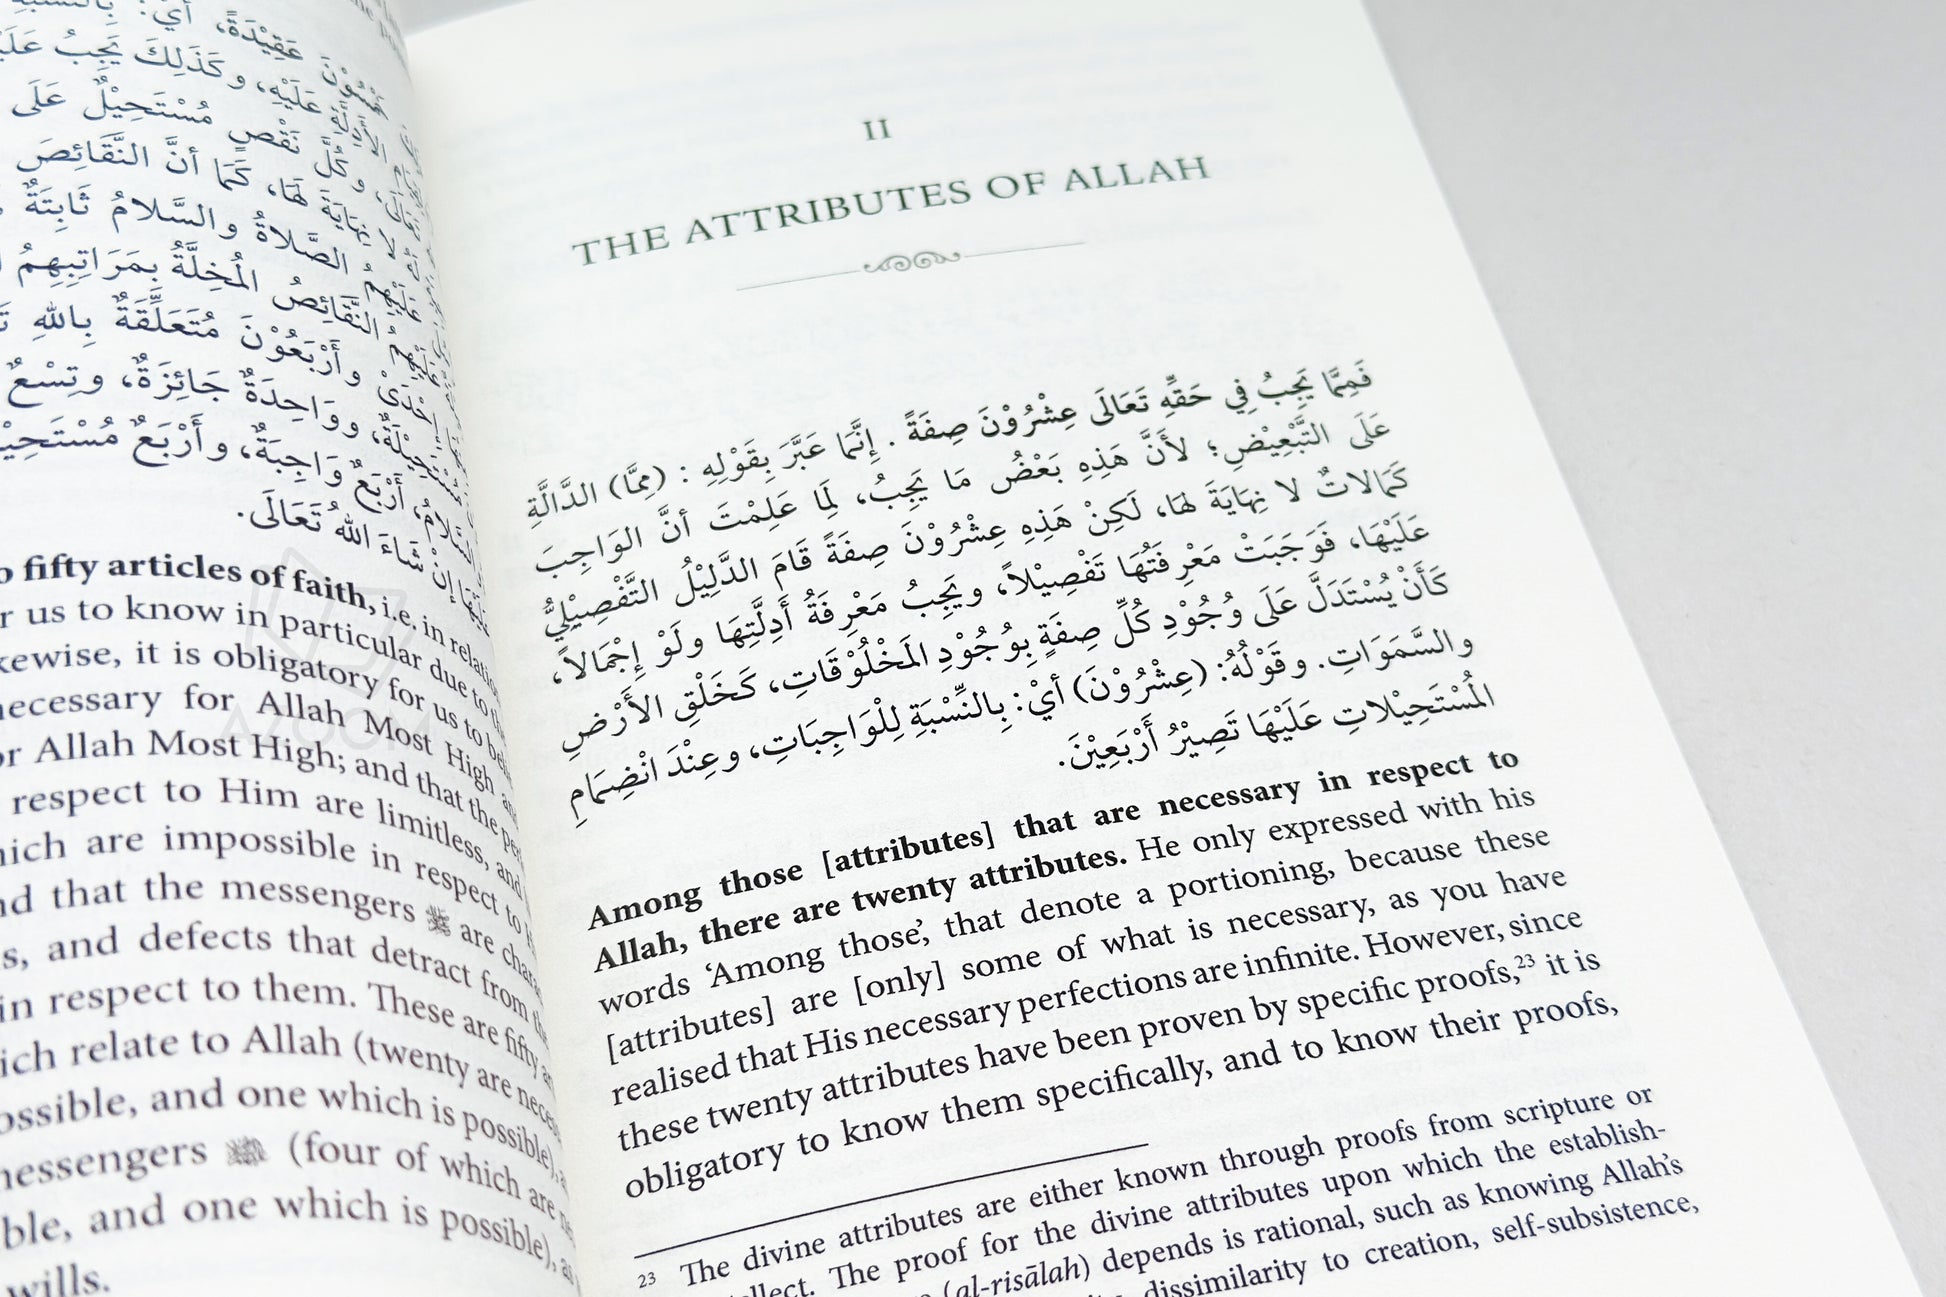 هْسُوْنَ عَقِيْدَةً، أَيْ: بِالنِّسْبَةِ
عَلَيْهِ، وكَذَلِكَ يَجِبُ عَلَيْ
وكُلَّ نَقْصٍ مُسْتَحِيْلٌ عَلَى
لا نِهَايَةَ لَهَا، كَمَا أنَّ النَّقَائِصَ
عَلَيْهِمُ الصَّلاةُ والسَّلامُ ثَابِتَةٌ
عَلَيْهِمُ النَّقَائِصُ المُخِلَّةُ بِمَرَاتِبِهِمُ
إحْدَىْ وأَرْبَعُوْنَ مُتَعَلِّقَةٌ بِاللهِ
مُسْتَحِيْلَةٌ، ووَاحِدَةٌ جَائِزَةٌ، وتِسْعٌ
السَّلامُ، أَرْبَعٌ وَاجِبَةٌ، وأَرْبَعٌ
عَلَيْهَا إنْ شَاءَ اللهُ تَعَالَى.
fifty articles of faith, i.e. in
us to know in particular due to
it is obligatory for us to
necessary for Allah Most High
Allah Most High; and that the
respect to Him are limitless, and
which are impossible in respect to
and that the messengers ﷺ are
and defects that detract from
in respect to them. These are fifty
which relate to Allah (twenty are
and one which is possible),
messengers ﷺ (four of which are
and one which is possible),
wills.
II
THE ATTRIBUTES OF ALLAH
فَمِمَّا يَجِبُ فِي حَقِّهِ تَعَالَى عِشْرُوْنَ صِفَةً . إِنَّمَا عَبَّرَ بِقَوْلِهِ : (مِمَّا) الدَّالَّةِ
عَلَى التَّبْعِيْضِ؛ لأَنَّ هَذِهِ بَعْضُ مَا يَجِبُ، لِمَا عَلِمْتَ أنَّ الوَاجِبَ
كَمَالاتٌ لا نِهَايَةَ لهَا، لَكِنْ هَذِهِ عِشْرُوْنَ صِفَةً قَامَ الدَّلِيْلُ التَّفْصِيْلِيُّ
عَلَيْهَا، فَوَجَبَتْ مَعْرِفَتُهَا تَفْصِيْلاً، ويَجِبُ مَعْرِفَةُ أَدِلَّتِهَا ولَوْ إِجْمَالاً،
كَأَنْ يُسْتَدَلَّ عَلَى وُجُوْدِ كُلِّ صِفَةٍ بِوُجُوْدِ المَخْلُوْقَاتِ، كَخَلْقِ الأَرْضِ
والسَّمَوَاتِ. وقَوْلُهُ: (عِشْرُوْنَ) أيْ: بِالنِّسْبَةِ لِلْوَاجِبَاتِ، وعِنْدَ انْضِمَامِ
المُسْتَحِيْلاتِ عَلَيْهَا تَصِيْرُ أَرْبَعِيْنَ.
Among those [attributes] that are necessary in respect to
Allah, there are twenty attributes. He only expressed with his
words ‘Among those’, that denote a portioning, because these
[attributes] are [only] some of what is necessary, as you have
realised that His necessary perfections are infinite. However, since
these twenty attributes have been proven by specific proofs,23 it is
obligatory to know them specifically, and to know their proofs,
23 The divine attributes are either known through proofs from scripture or
intellect. The proof for the divine attributes upon which the establish-
(al-risālah) depends is rational, such as knowing Allah’s
dissimilarity to creation, self-subsistence,